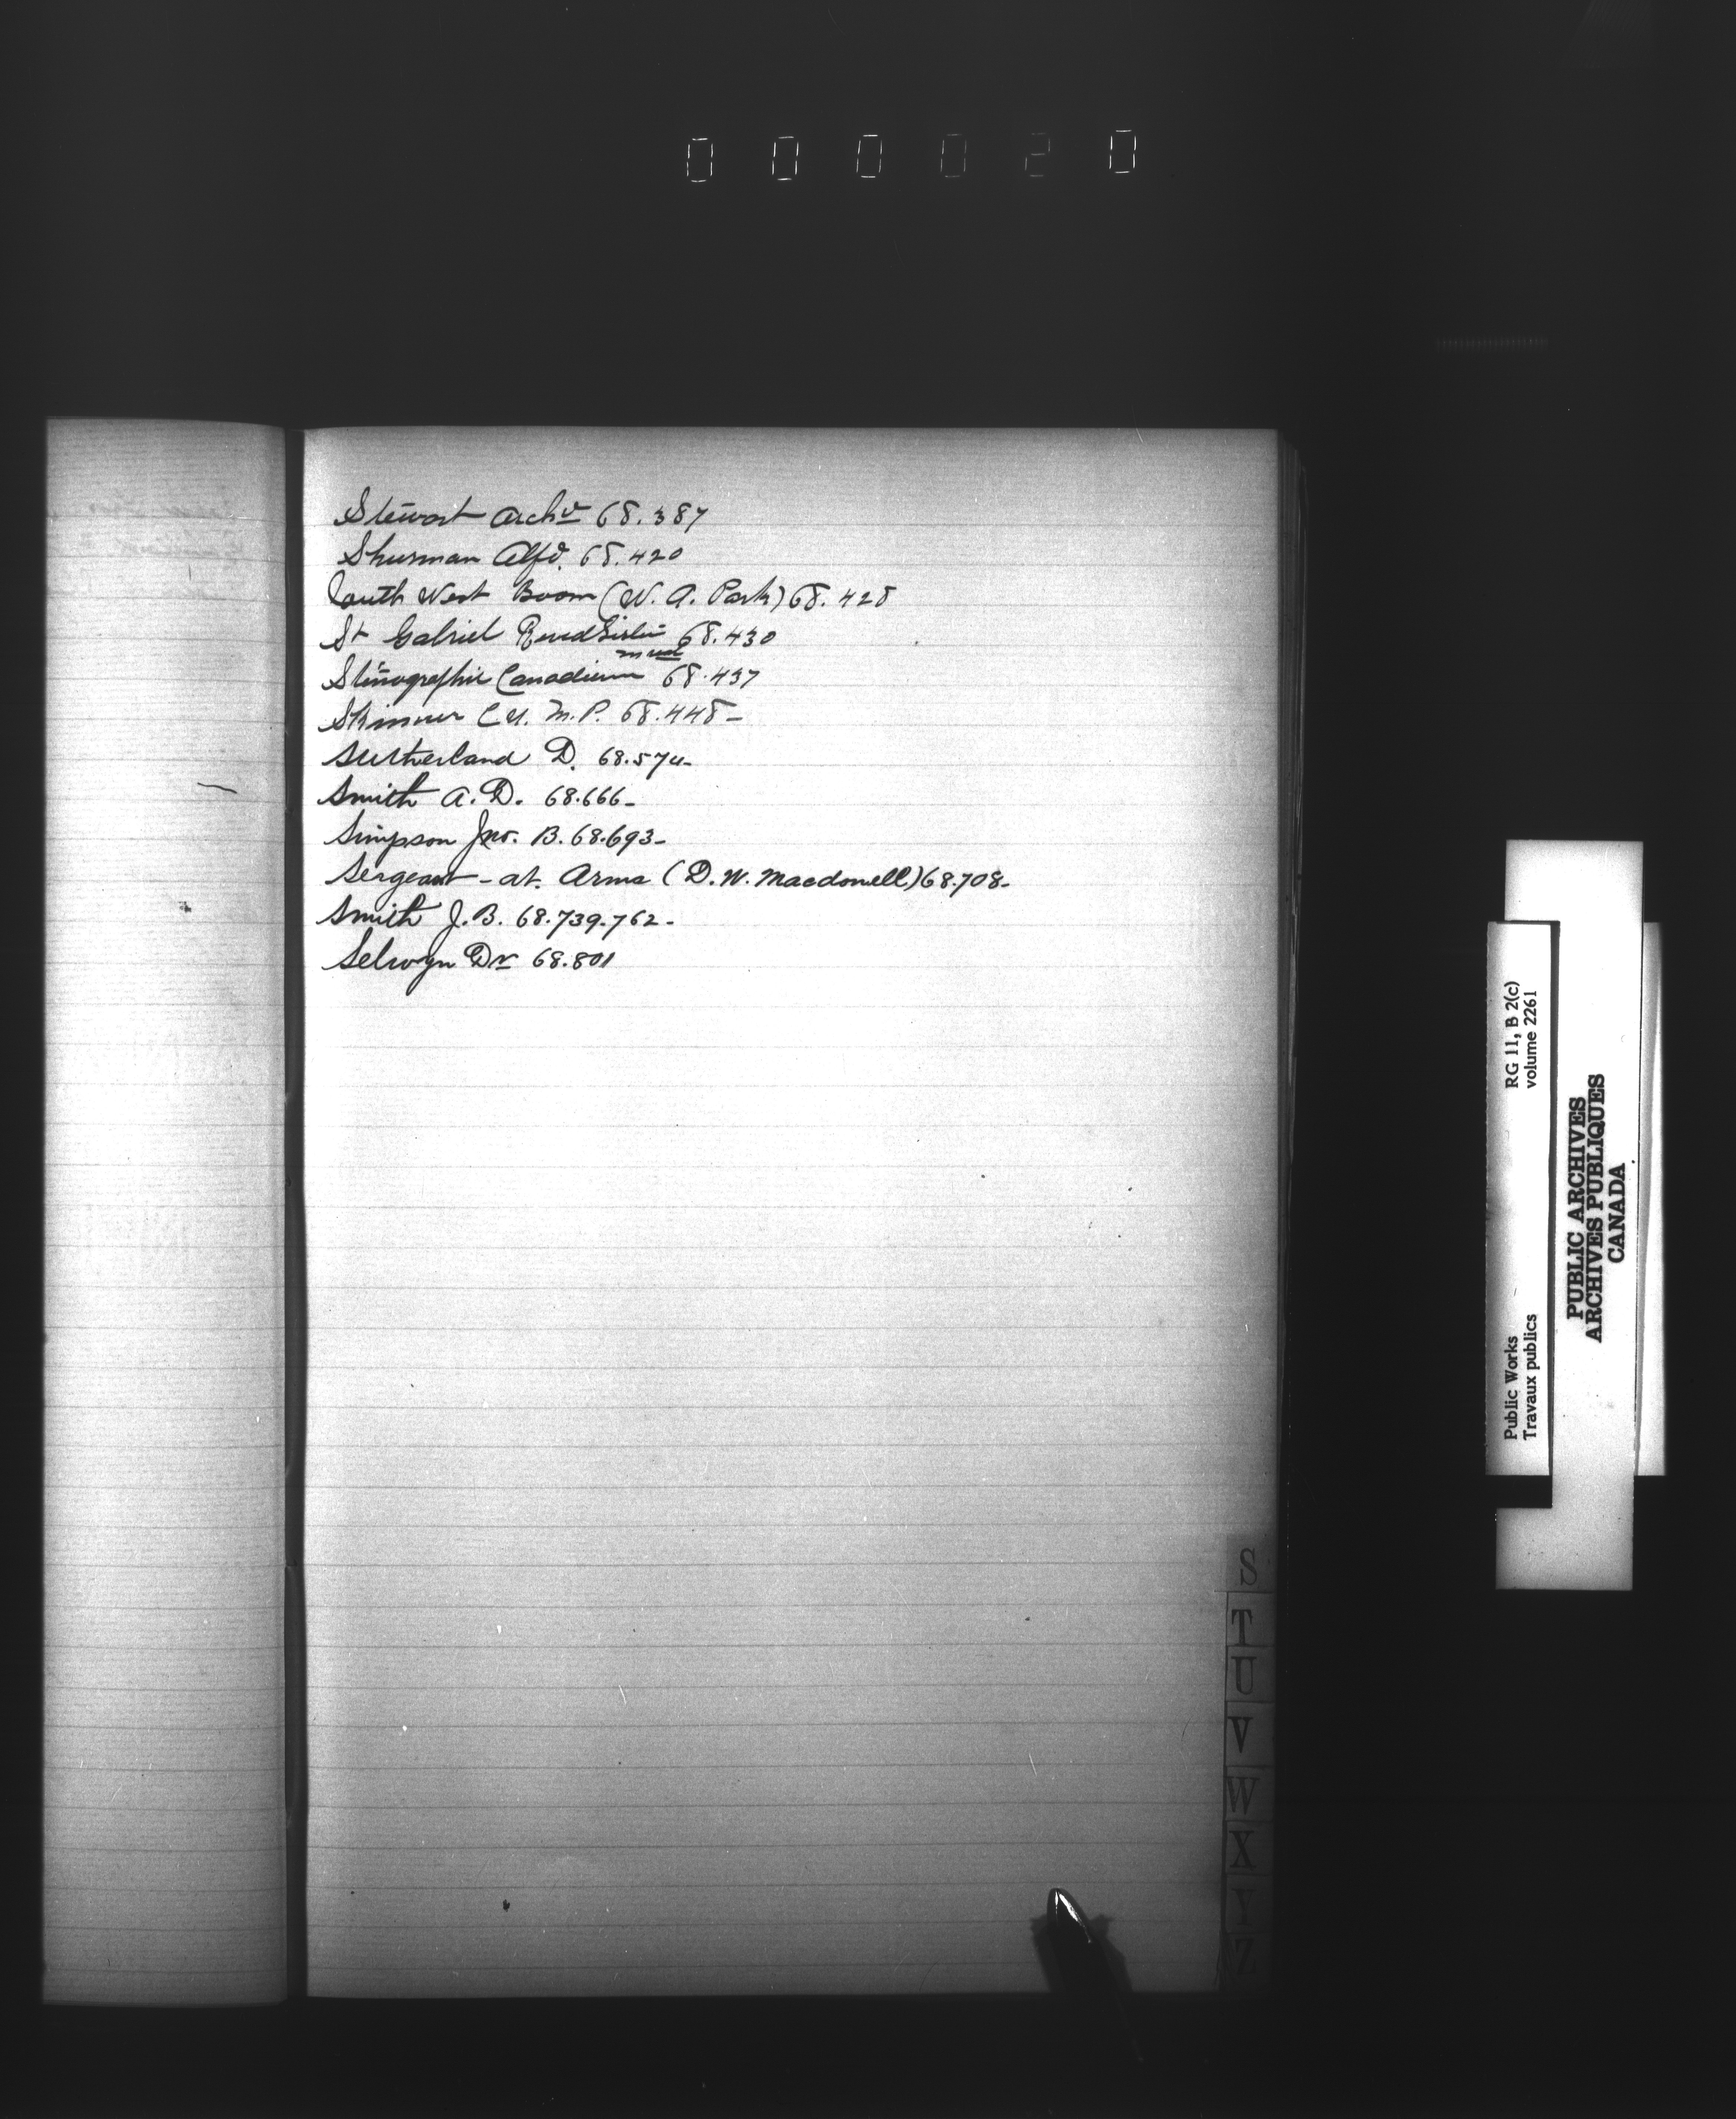 000020
Stewart Archd 68.387
Shurman Alfd. 68.420
South West Boom (W. A. Park) 68.428
St Gabriel 68.430
Sténographie Canadienne 68.437
Skinner C N. M.P. 68.448-
Sutherland D. 68.574-
Smith A. D. 68.666-
Simpson Jno. B. 68.693-
Sergeant-at. Arms (D. W. Macdonell) 68.708-
Smith J. B. 68.739.762-
Selwyn Dr 68.801
S
T
U
V
W
X
Y
Z
Public Works RG 11, B 2(c)
Travaux publics volume 2261
PUBLIC ARCHIVES
ARCHIVES PUBLIQUES
CANADA